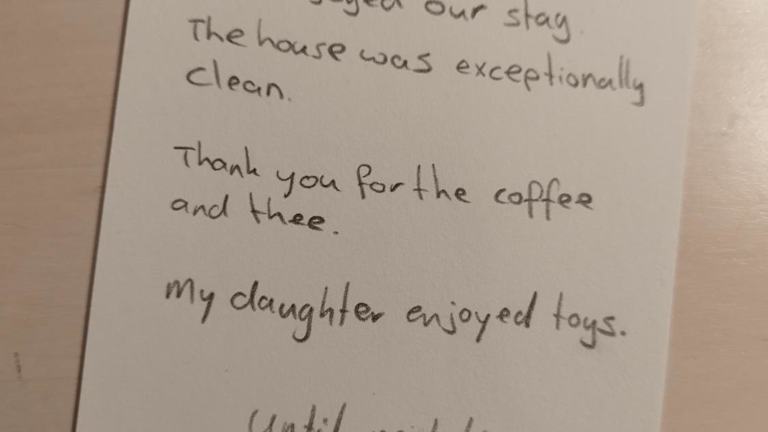 our stay.
The house was exceptionally
clean.
Thank you for the coffee
and thee.
My daughter enjoyed toys.
Until